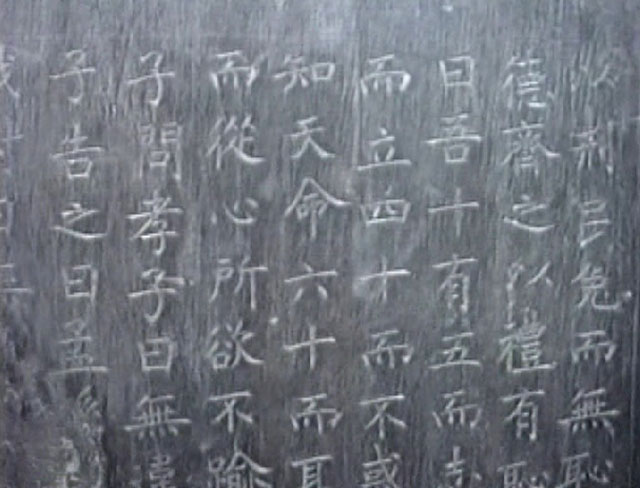 以刑民免而無恥
德齊之以禮有恥
曰吾十有五而志
而立四十而不惑
知天命六十而耳
而從心所欲不踰
子問孝子曰無違
子告之曰孟孫
我對曰